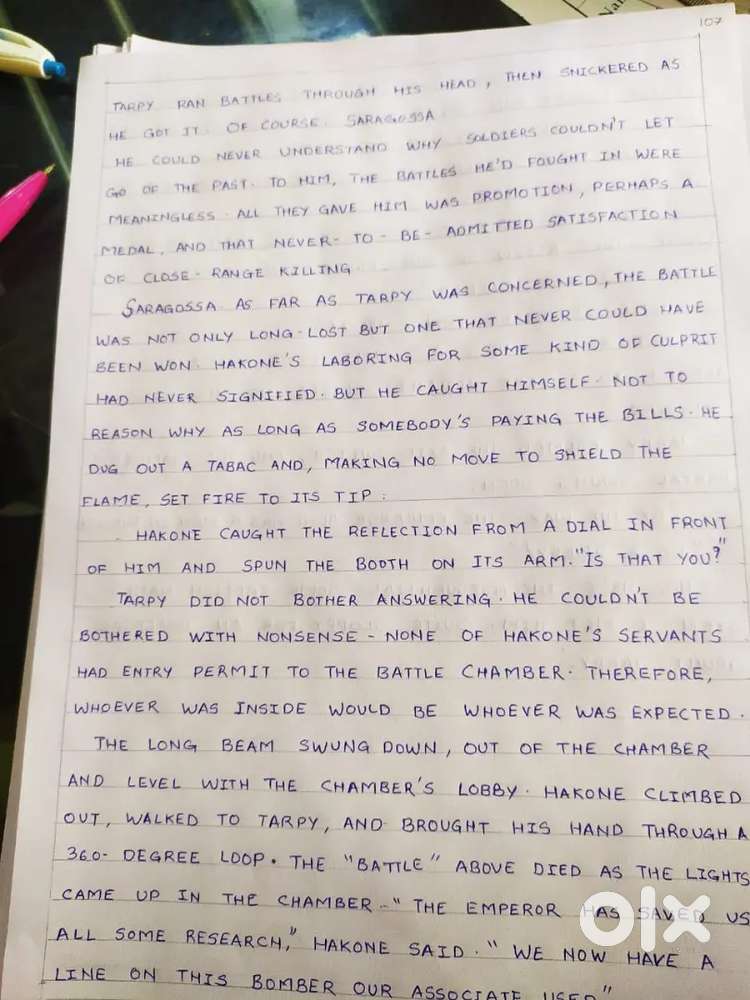 107
TARPY RAN BATTLES THROUGH HIS HEAD, THEN SNICKERED AS
HE GOT IT. OF COURSE. SARAGOSSA
HE COULD NEVER UNDERSTAND WHY SOLDIERS COULDN'T LET
GO OF THE PAST. TO HIM, THE BATTLES HE'D FOUGHT IN WERE
MEANINGLESS. ALL THEY GAVE HIM WAS PROMOTION, PERHAPS A
MEDAL, AND THAT NEVER-TO-BE-ADMITTED SATISFACTION
OF CLOSE-RANGE KILLING
SARAGOSSA AS FAR AS TARPY WAS CONCERNED, THE BATTLE
WAS NOT ONLY LONG-LOST BUT ONE THAT NEVER COULD HAVE
BEEN WON. HAKONE'S LABORING FOR SOME KIND OF CULPRIT
HAD NEVER SIGNIFIED. BUT HE CAUGHT HIMSELF. NOT TO
REASON WHY AS LONG AS SOMEBODY'S PAYING THE BILLS. HE
DUG OUT A TABAC AND, MAKING NO MOVE TO SHIELD THE
FLAME, SET FIRE TO ITS TIP.
HAKONE CAUGHT THE REFLECTION FROM A DIAL IN FRONT
OF HIM AND SPUN THE BOOTH ON ITS ARM. "IS THAT YOU?"
TARPY DID NOT BOTHER ANSWERING. HE COULDN'T BE
BOTHERED WITH NONSENSE - NONE OF HAKONE'S SERVANTS
HAD ENTRY PERMIT TO THE BATTLE CHAMBER. THEREFORE,
WHOEVER WAS INSIDE WOULD BE WHOEVER WAS EXPECTED.
THE LONG BEAM SWUNG DOWN, OUT OF THE CHAMBER
AND LEVEL WITH THE CHAMBER'S LOBBY. HAKONE CLIMBED
OUT, WALKED TO TARPY, AND BROUGHT HIS HAND THROUGH A
360-DEGREE LOOP. THE "BATTLE" ABOVE DIED AS THE LIGHTS
CAME UP IN THE CHAMBER. "THE EMPEROR HAS SAVED US
ALL SOME RESEARCH," HAKONE SAID. "WE NOW HAVE A
LINE ON THIS BOMBER OUR ASSOCIATE USED"
olx